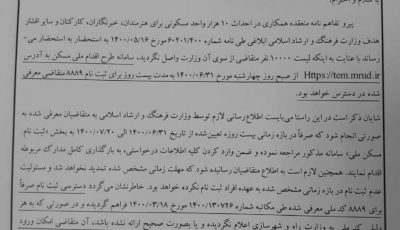 پیرو تفاهم نامه منعقده همکاری در احداث ۱۰ هزار واحد مسکونی برای هنرمندان، خبرنگاران، کارکنان و سایر اقشار
هدف وزارت فرهنگ و ارشاد اسلامی ابلاغی طی نامه شماره ۶۰۲۰۱/۴۰۰ مورخ ۱۴۰۰/۰۵/۱۶ به استحضار به استحضار می-
رساند با عنایت به اینکه لیست ۱۰۰۰۰ نفر متقاضی از سوی آن وزارت واصل نگردید، سامانه طرح اقدام ملی مسکن به آدرس
Https://tem.mrud.ir از صبح روز چهارشنبه مورخ ۱۴۰۰/۰۶/۳۱ به مدت بیست روز برای ثبت نام ۸۸۸۹ متقاضی معرفی
شده در دسترس خواهد بود.
شایان ذکر است در این راستا می‌بایست اطلاع‌رسانی لازم توسط وزارت فرهنگ و ارشاد اسلامی به متقاضیان معرفی شده به
صورتی انجام شود که صرفاً در بازه زمانی بیست روزه تعیین‌شده از تاریخ ۱۴۰۰/۰۶/۳۱ الی ۱۴۰۰/۰۷/۲۰ به بخش «ثبت نام
مسکن ملی» سامانه مذکور مراجعه نموده و ضمن وارد کردن کلیه اطلاعات درخواستی، به بارگذاری کامل مدارک مربوطه
اقدام نمایند. همچنین لازم است به اطلاع متقاضیان رسانیده شود که مهلت زمانی مشخص شده تمدید نخواهد شد و مسئولیت
عدم ثبت نام در بازه زمانی مشخص شده به عهده افراد ثبت نام نکرده خواهد بود. خاطرنشان می‌گردد دسترسی ثبت نام صرفاً
برای ۸۸۸۹ کد ملی معرفی شده طی مکاتبه شماره ۱۴۰۰/۱۳۰۷۲۶ مورخ ۱۴۰۰/۰۳/۱۸ فراهم گردیده و در صورتی که به هر
دلیلی کد ملی به وزارت راه و شهرسازی اعلام نگردیده و یا بصورت صحیح ارائه نشده باشد، آن متقاضی امکان ورود